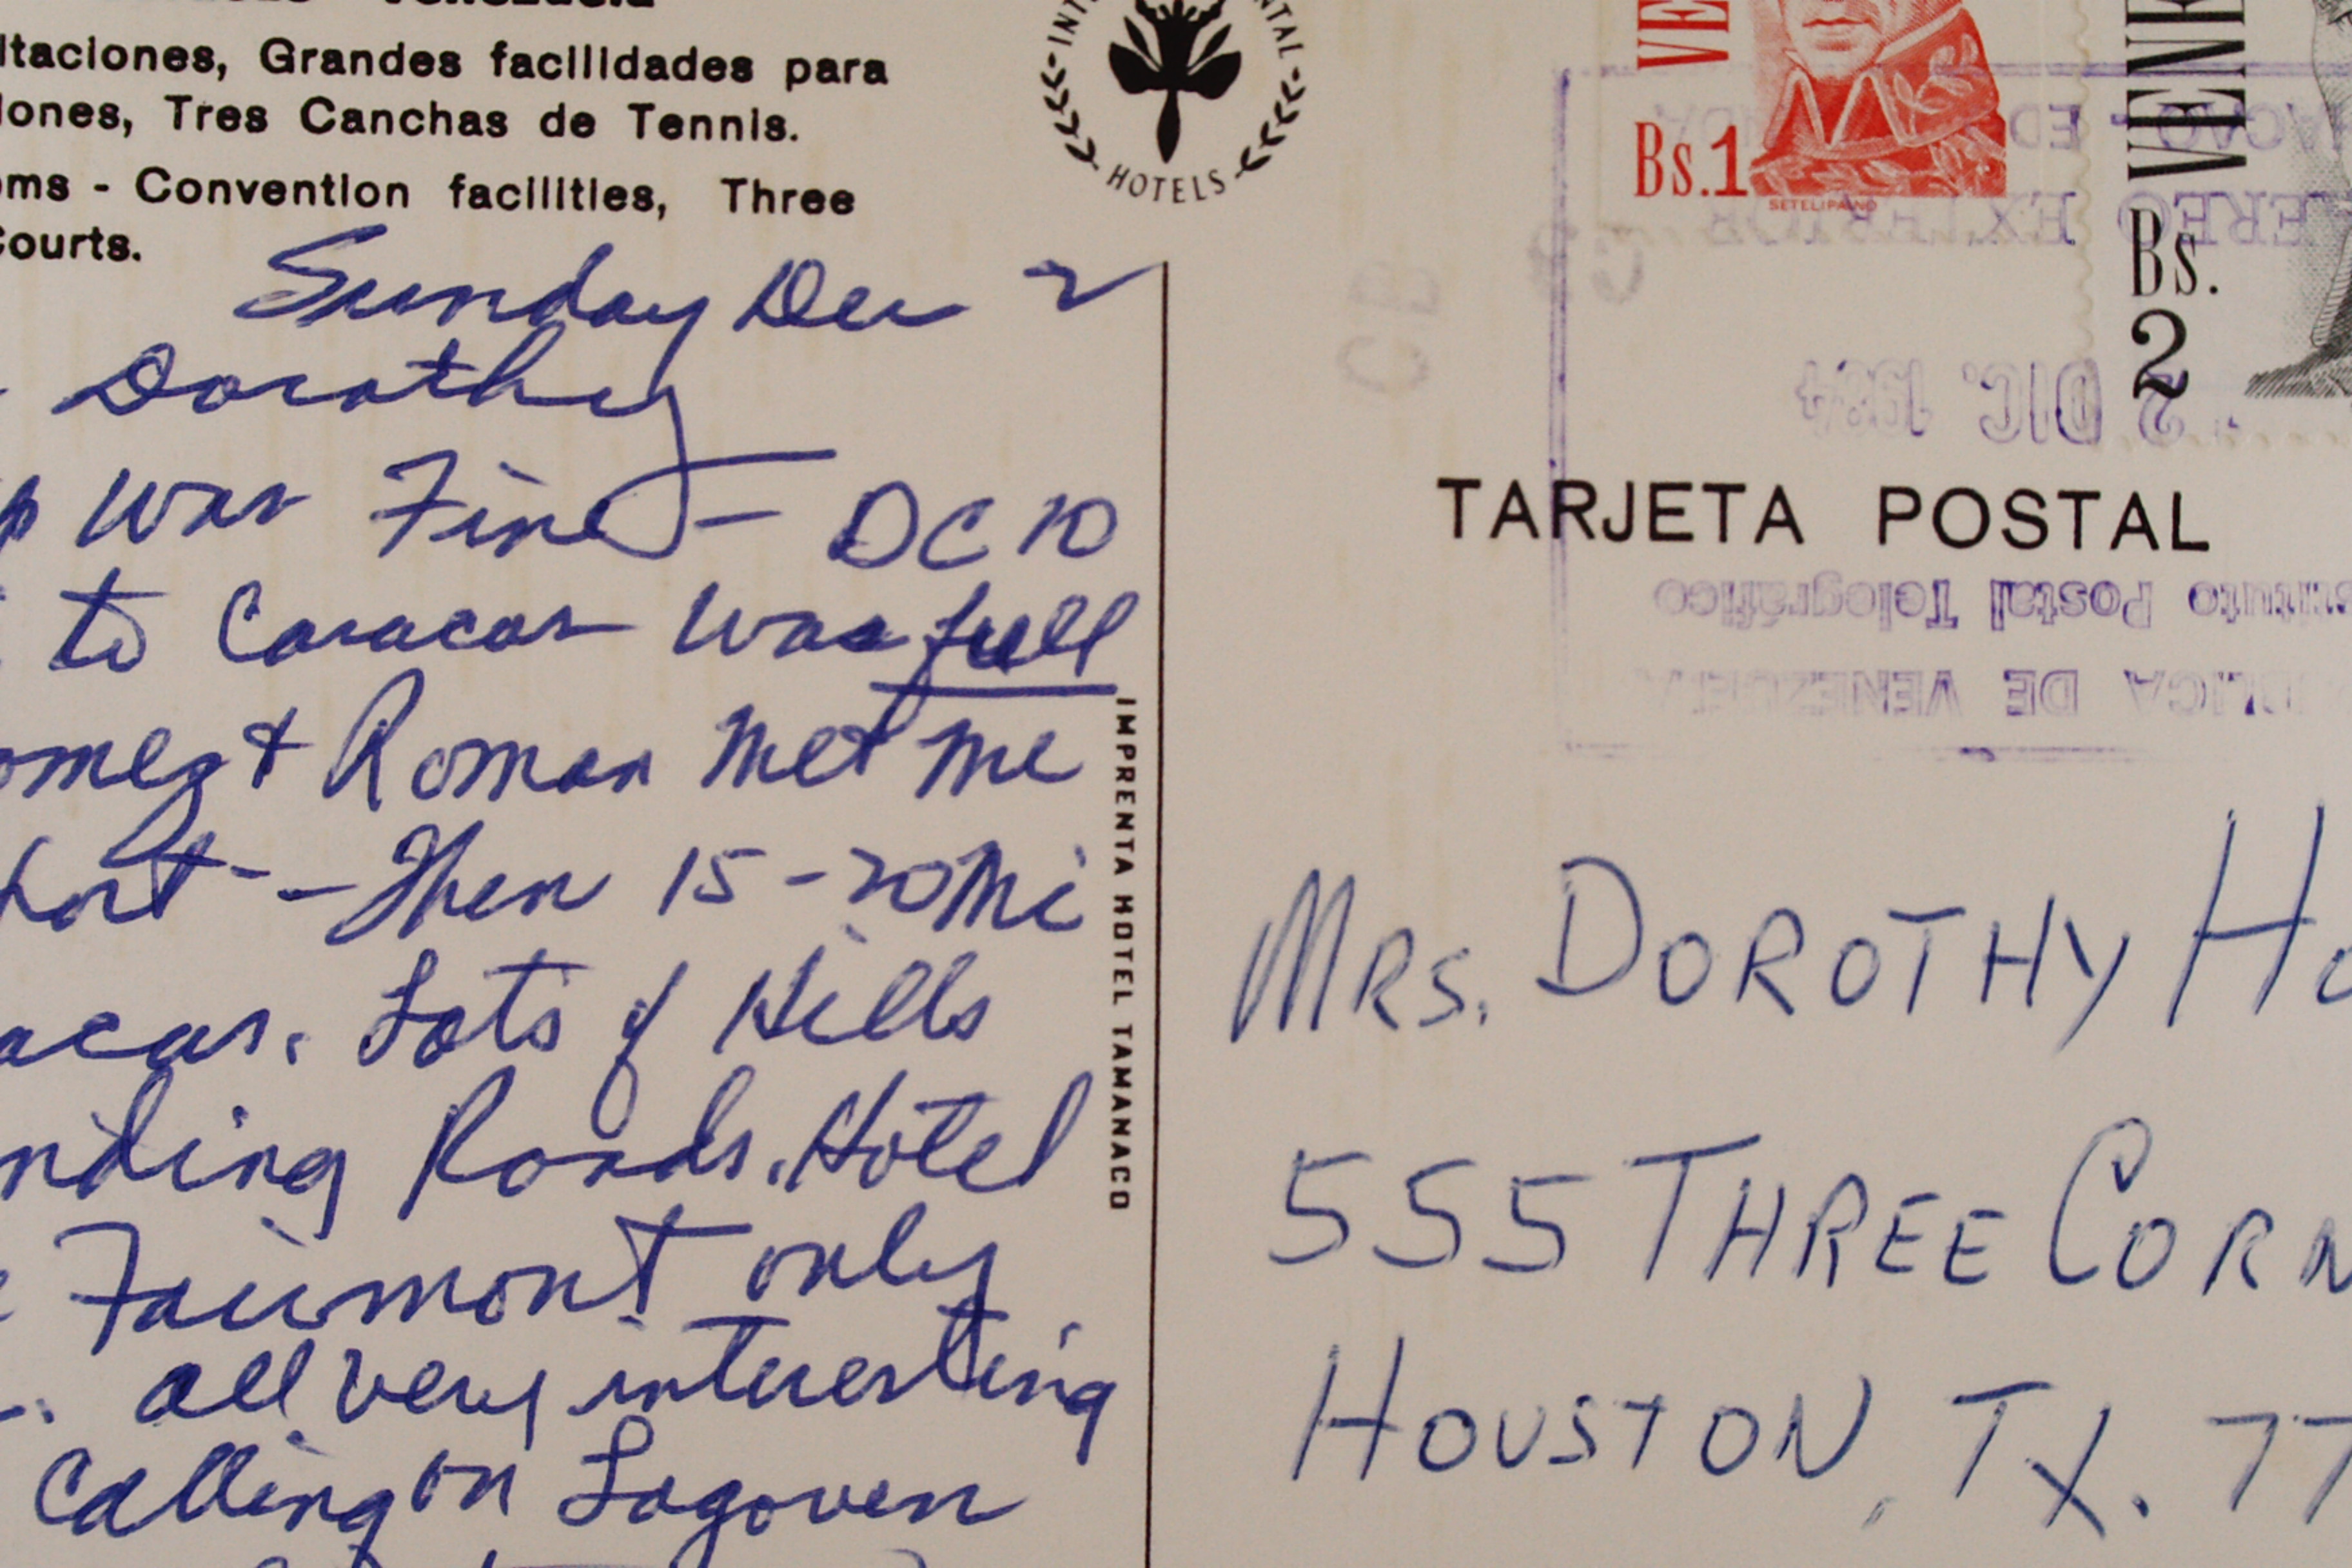 Venezuela
itaciones, Grandes facilidades para
iones, Tres Canchas de Tennis.
oms - Convention facilities, Three
Courts.
HOTELS
Sunday Dec 2
Dorothy
p was Fine - DC 10
to Caracas was full
omez & Roman met me
port -- Then 15-20 Mi
acas. Lots of Hills
nding Roads. Hotel
Fairmont only
all very interesting
Calling on Lagoven
IMPRENTA HOTEL TAMANACO
VE
Bs.1
SETELIPANO
VENE
Bs.
2
AEREO EXTERIOR
2 DIC. 1984
TARJETA POSTAL
tituto Postal Telegráfico
BLICA DE VENEZUELA
MRS. DOROTHY HO
555 THREE CORN
HOUSTON, TX. 77